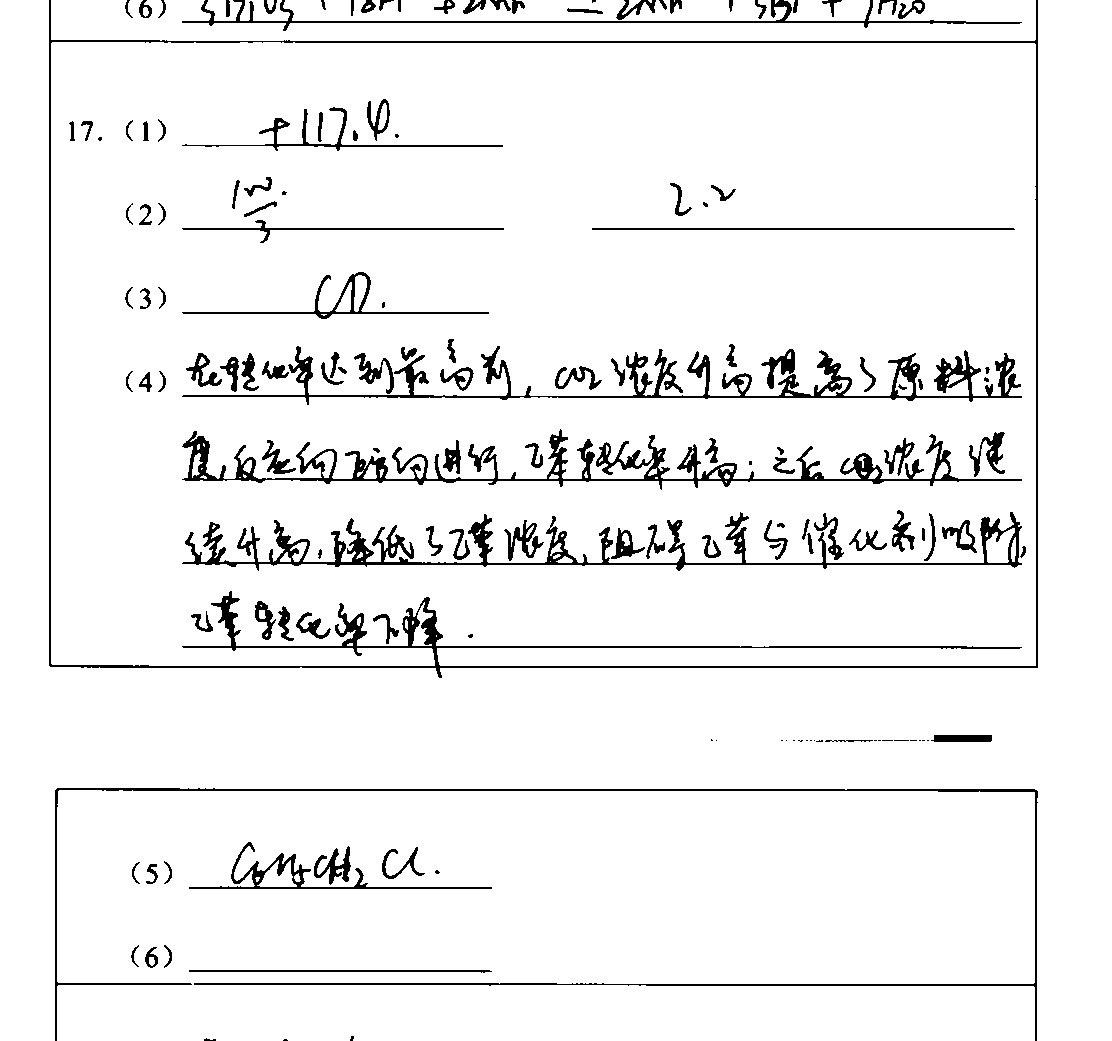 (6) 5BiO₃⁻ + 14H⁺ + 2Mn²⁺ = 2MnO₄⁻ + 5Bi³⁺ + 7H₂O
17.（1） +117.4.
（2） 100/3. 2.2
（3） CD.
（4） 在转化率达到最高前，CO₂浓度升高提高了原料浓
度，反应向正方向进行，乙苯转化率升高；之后CO₂浓度继
续升高，降低了乙苯浓度，阻碍乙苯与催化剂吸附，
乙苯转化率下降.
（5） C₆H₅CH₂Cl.
（6）